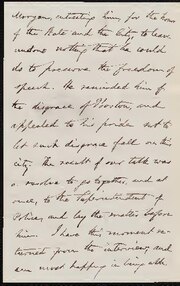 Morgan, entreating him, for the honor
of the State and the City, to leave
undone nothing that he could
do to preserve the freedom of
speech. He reminded him of
the disgrace of Boston, and
appealed to his pride not to
let such disgrace fall on this
city. The result of our talk was
a resolve to go together, and at
once, to the Superintendent of
Police, and lay the matter before
him. I have this moment re-
turned from the interview, and
am most happy in being able